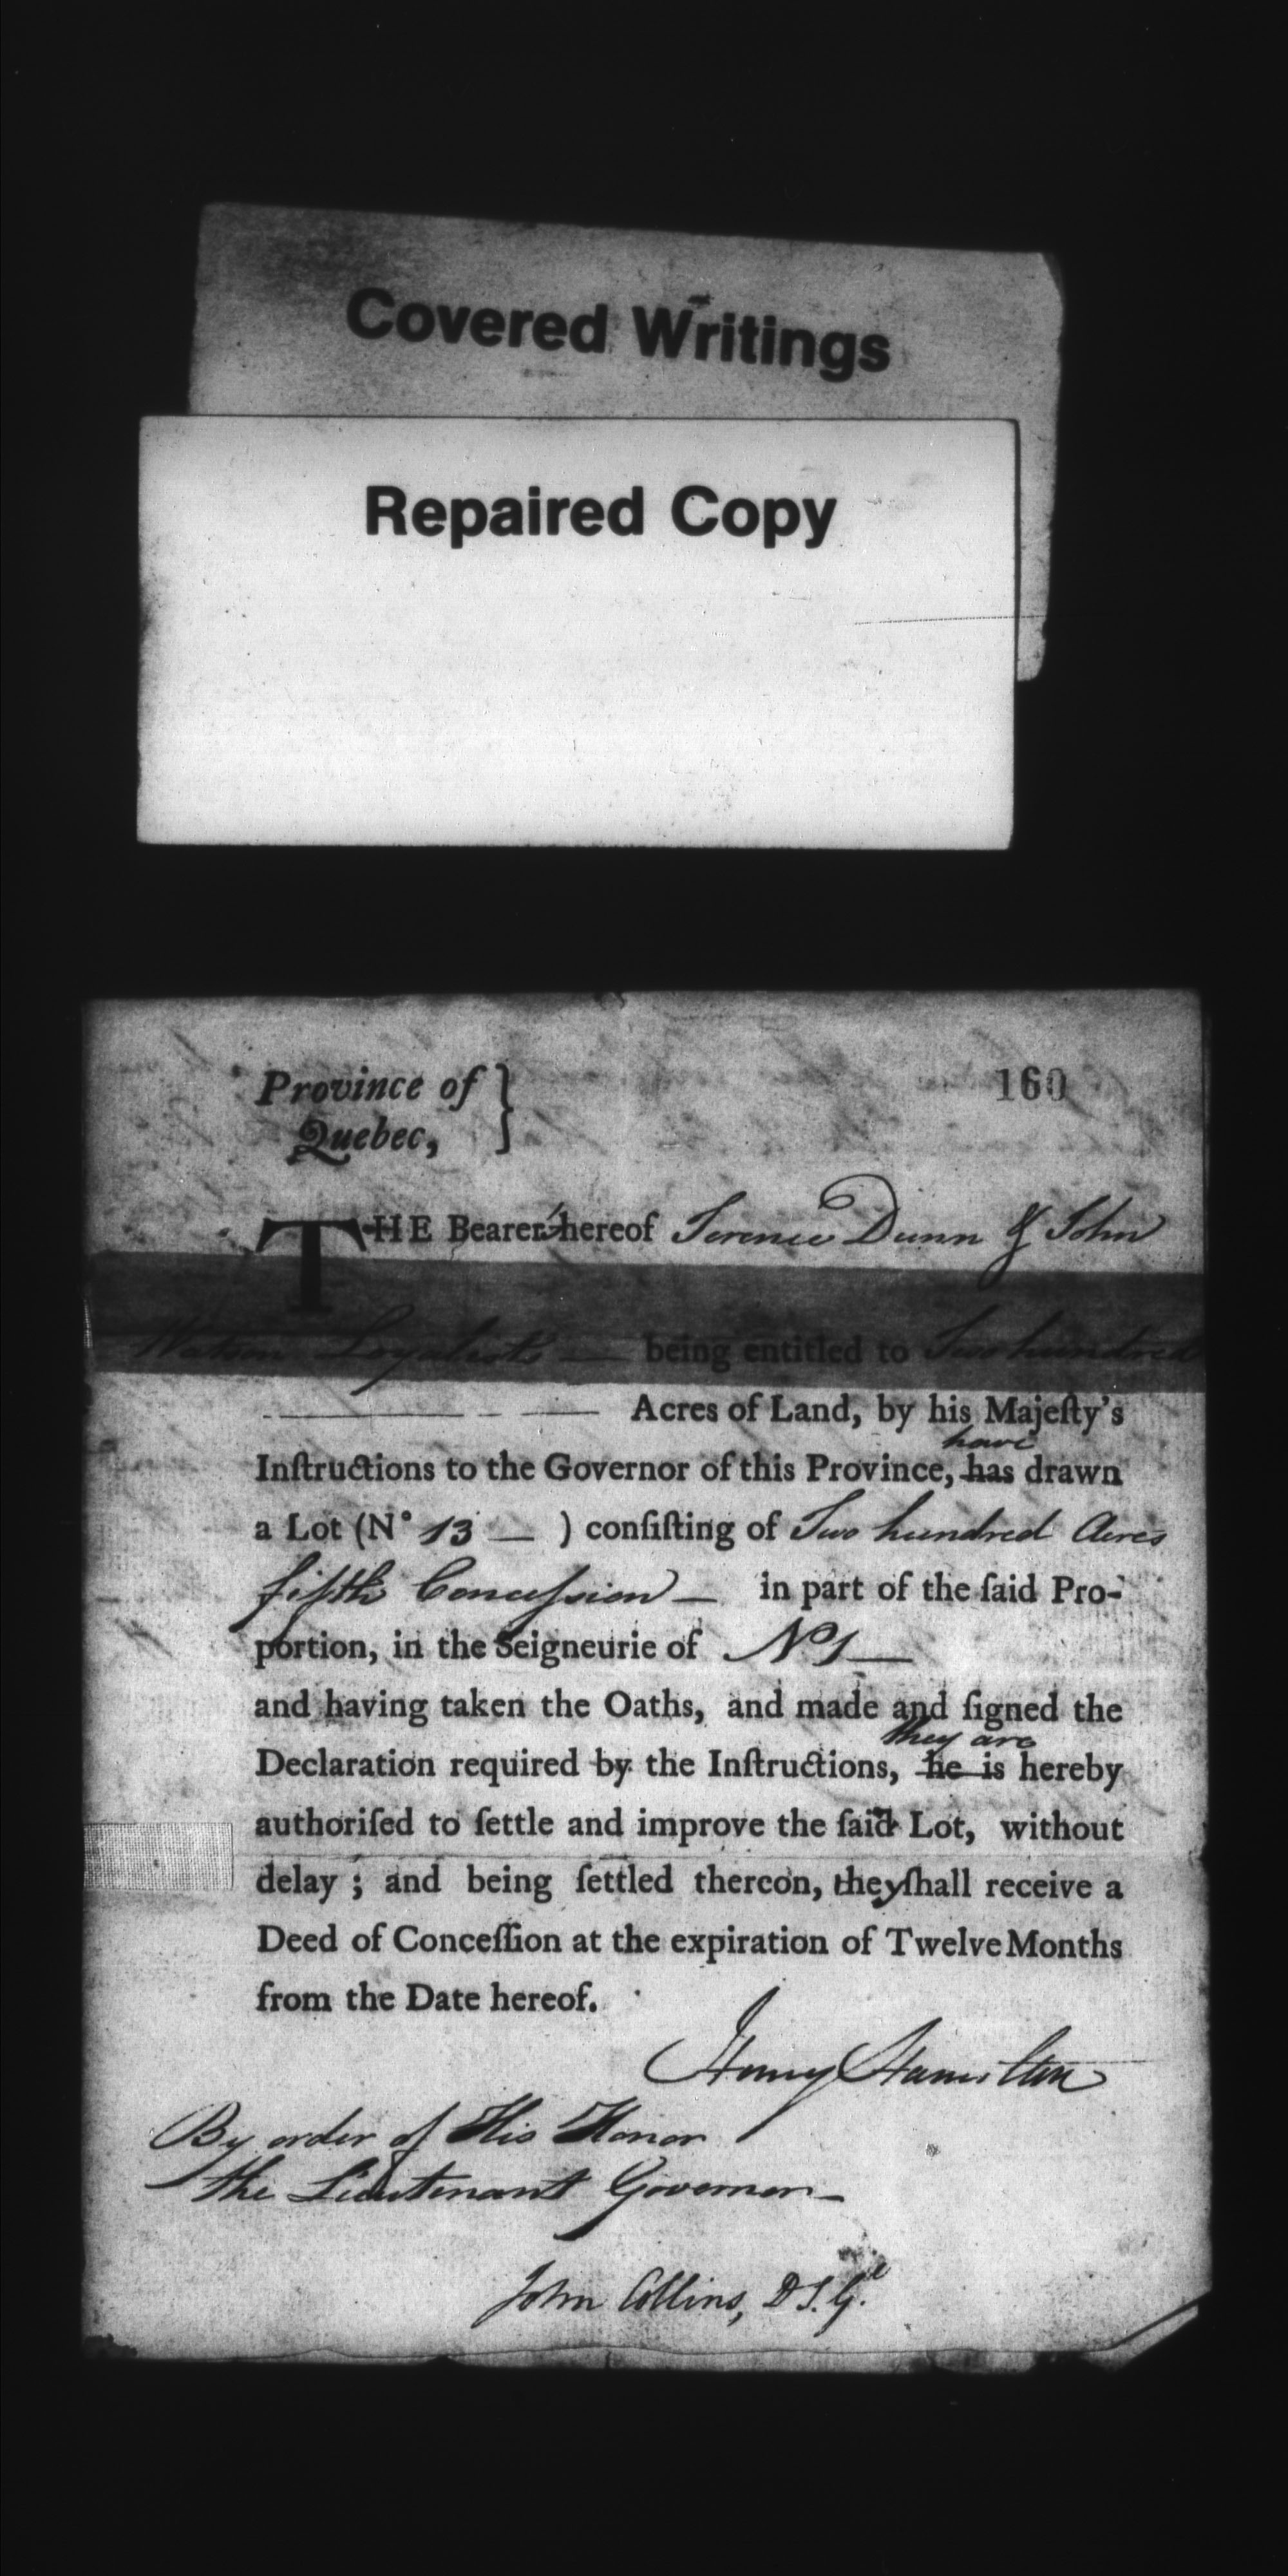 Covered Writings
Repaired Copy
Province of }
Quebec,
160
THE Bearers hereof Terence Dunn & John
Watson Loyalists — being entitled to Two hundred
Acres of Land, by his Majeſty's
have
Inſtructions to the Governor of this Province, has drawn
a Lot (N° 13 — ) conſiſting of Two hundred Acres
fifth Conceſsion — in part of the ſaid Pro-
portion, in the Seigneurie of N° 1 —
and having taken the Oaths, and made and ſigned the
they are
Declaration required by the Inſtructions, he is hereby
authoriſed to ſettle and improve the ſaid Lot, without
delay ; and being ſettled thereon, they ſhall receive a
Deed of Conceſſion at the expiration of Twelve Months
from the Date hereof.
Henry Hamilton
By order of His Honor
the Lieutenant Governor —
John Collins, D.S.Gl